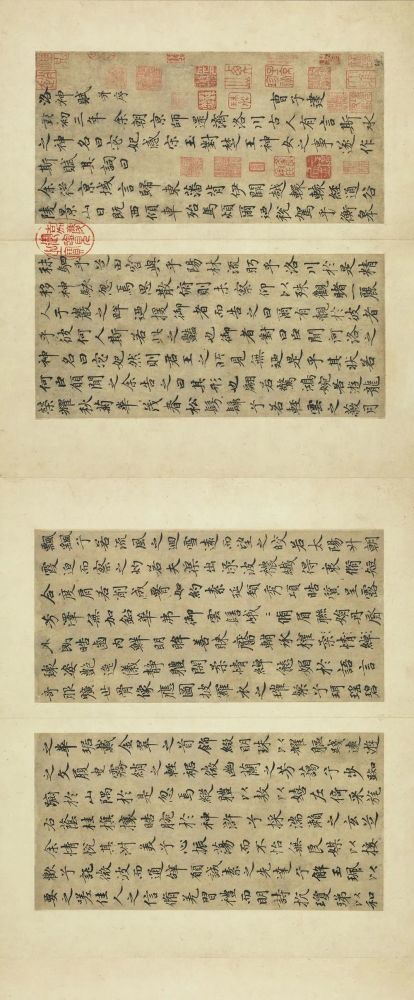 洛神賦 并序 曹子建
黃初三年余朝京師還濟洛川古人有言斯水
之神名曰宓妃感宋玉對楚王神女之事遂作
斯賦其詞曰
余從京域言歸東藩背伊闕越轘轅經通谷
陵景山日既西傾車殆馬煩爾迺稅駕乎蘅皋
秣駟乎芝田容與乎陽林流眄乎洛川於是精
移神駭忽焉思散俯則未察仰以殊觀睹一麗
人于巖之畔迺援御者而告之曰爾有覿於彼者
乎彼何人斯若此之豔也御者對曰臣聞河洛之
神名曰宓妃然則君王之所見無迺是乎其狀若
何臣願聞之余告之曰其形也翩若驚鴻婉若遊龍
榮耀秋菊華茂春松髣髴兮若輕雲之蔽月
飄颻兮若流風之迴雪遠而望之皎若太陽升朝
霞迫而察之灼若夫蕖出淥波穠纖得衷脩短
合度肩若削成腰如約素延頸秀項皓質呈露
芳澤無加鉛華弗御雲髻峨〻脩眉聯娟丹唇
外朗皓齒內鮮明眸善睞靨輔承權柔情綽
瓌姿豔逸儀靜體閑柔情綽態媚於語言
奇服曠世骨像應圖披羅衣之璀粲兮珥瑤碧
之華琚戴金翠之首飾綴明珠以耀軀踐遠遊
之文履曳霧綃之輕裾微幽蘭之芳藹兮步踟
躕於山隅於是忽焉縱體以遨以嬉左倚采旄
右蔭桂旗攘皓腕於神滸兮採湍瀨之玄芝
余情悅其淑美兮心振蕩而不怡無良媒以接
歡兮託微波而通辭願誠素之先達兮解玉珮以
要之嗟佳人之信脩羌習禮而明詩抗瓊珶以和